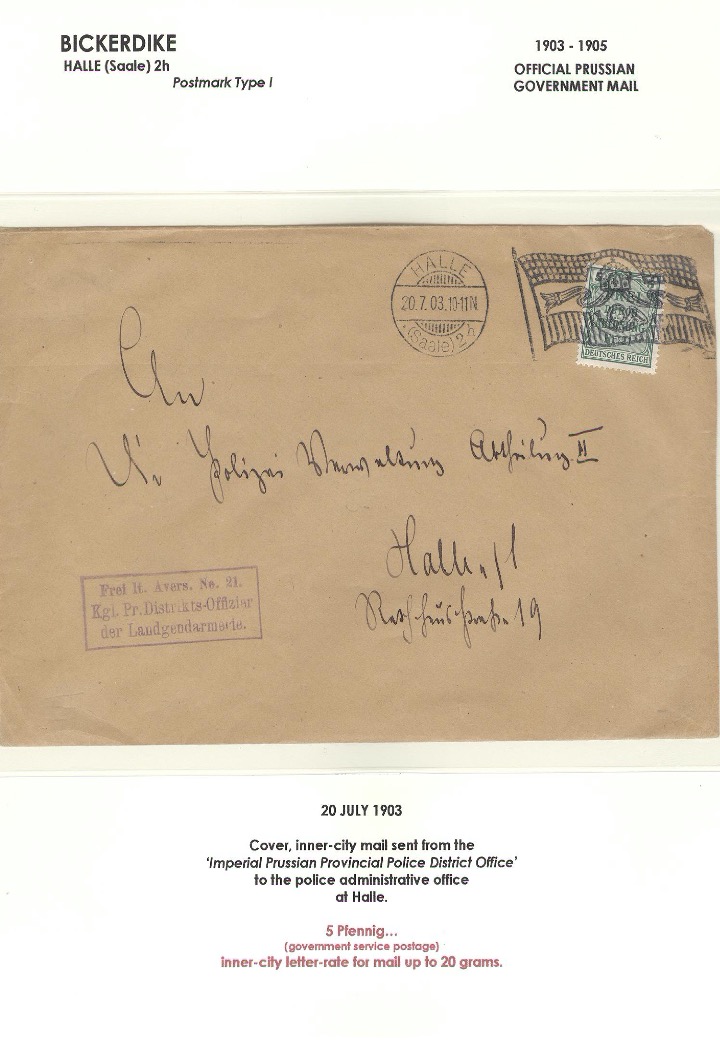 BICKERDIKE
HALLE (Saale) 2h
Postmark Type I
1903 - 1905
OFFICIAL PRUSSIAN
GOVERNMENT MAIL
HALLE
20.7.03.10-11N
(Saale) 2h
DEUTSCHES REICH
An
Die Polizei Verwaltung Abtheilung II
Halle a/S
Rathhausstraße 19
Frei lt. Avers. No. 21.
Kgl. Pr. Distrikts-Offizier
der Landgendarmerie.
20 JULY 1903
Cover, inner-city mail sent from the
'Imperial Prussian Provincial Police District Office'
to the police administrative office
at Halle.
5 Pfennig...
(government service postage)
inner-city letter-rate for mail up to 20 grams.